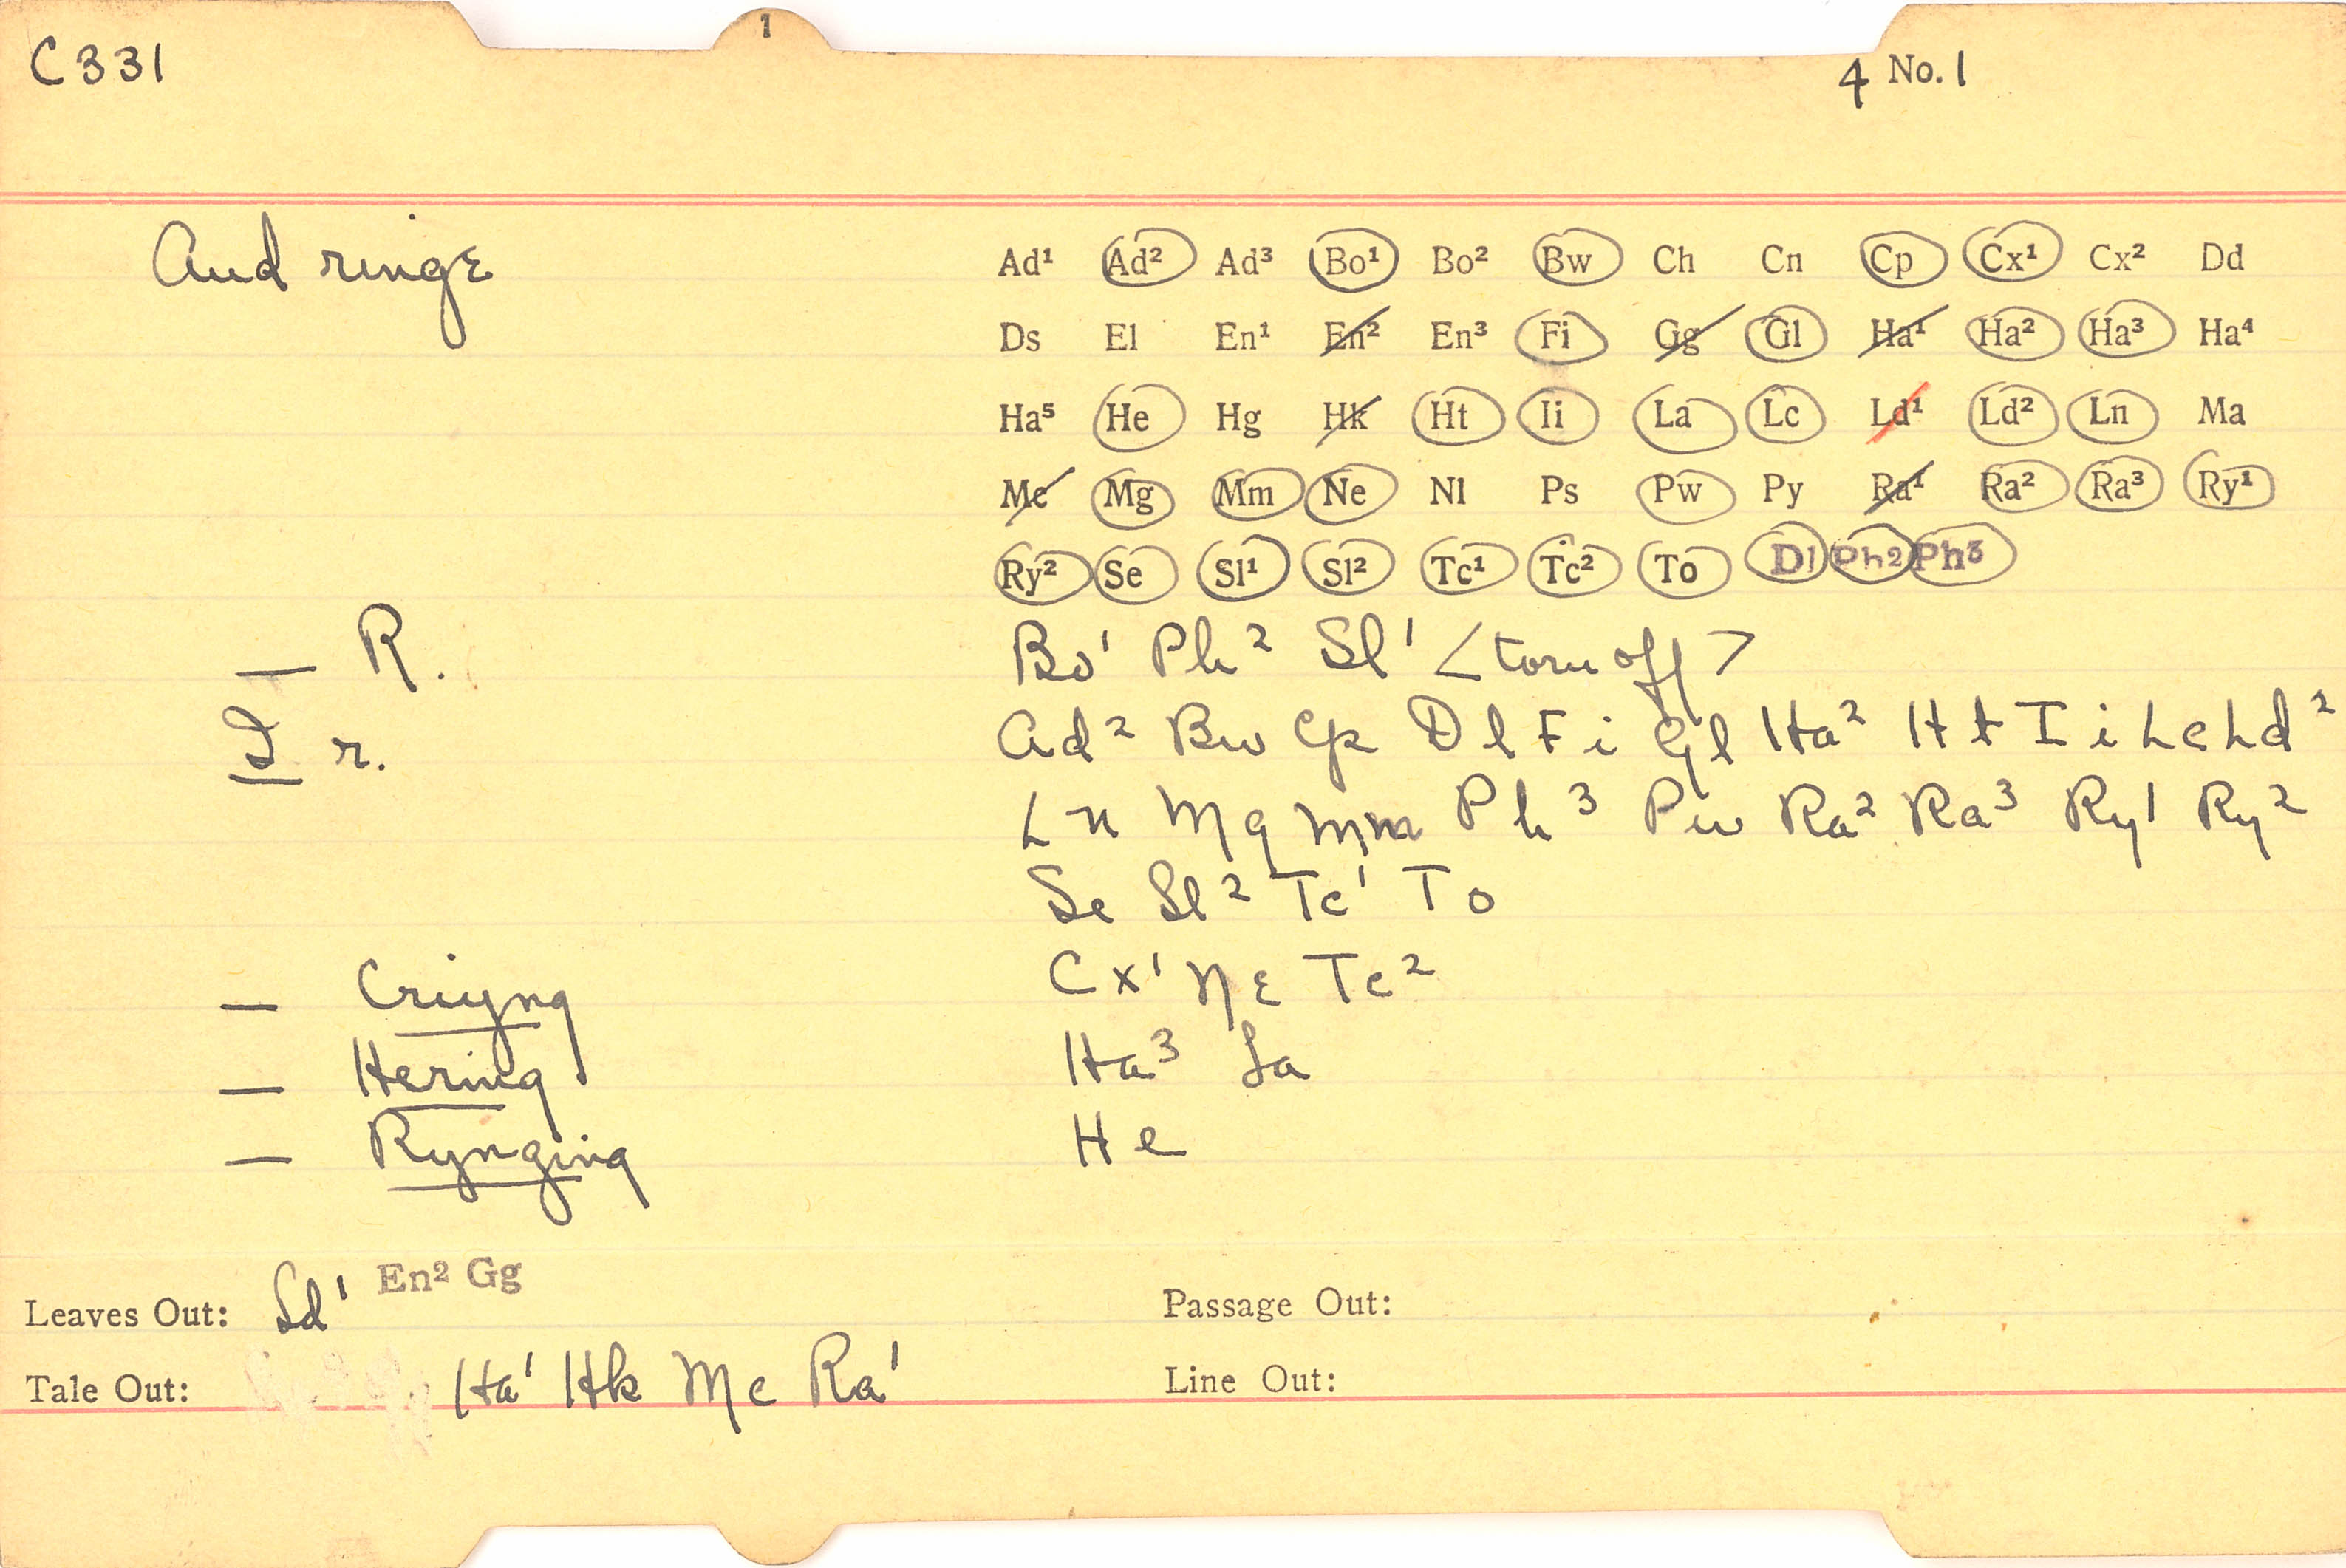 1
C331
4 No. 1
And ringe
Ad¹ Ad² Ad³ Bo¹ Bo² Bw Ch Cn Cp Cx¹ Cx² Dd
Ds El En¹ En² En³ Fi Gg Gl Ha¹ Ha² Ha³ Ha⁴
Ha⁵ He Hg Hk Ht Ii La Lc Ld¹ Ld² Ln Ma
Mc Mg Mm Ne Nl Ps Pw Py Ra¹ Ra² Ra³ Ry¹
Ry² Se Sl¹ Sl² Tc¹ Tc² To Dl Ph2 Ph3
— R. Bo¹ Ph² Sl¹ <torn off>
I r. Ad² Bw Cp Dl Fi Gl Ha² Ht Ii Lc Ld²
Ln Mg Mm Ph³ Pw Ra² Ra³ Ry¹ Ry²
Se Sl² Tc¹ To
— Criyng Cx¹ Ne Tc²
— Hering Ha³ La
— Rynging He
Leaves Out: Ld¹ En² Gg Passage Out:
Tale Out: Ha¹ Hk Mc Ra¹ Line Out: